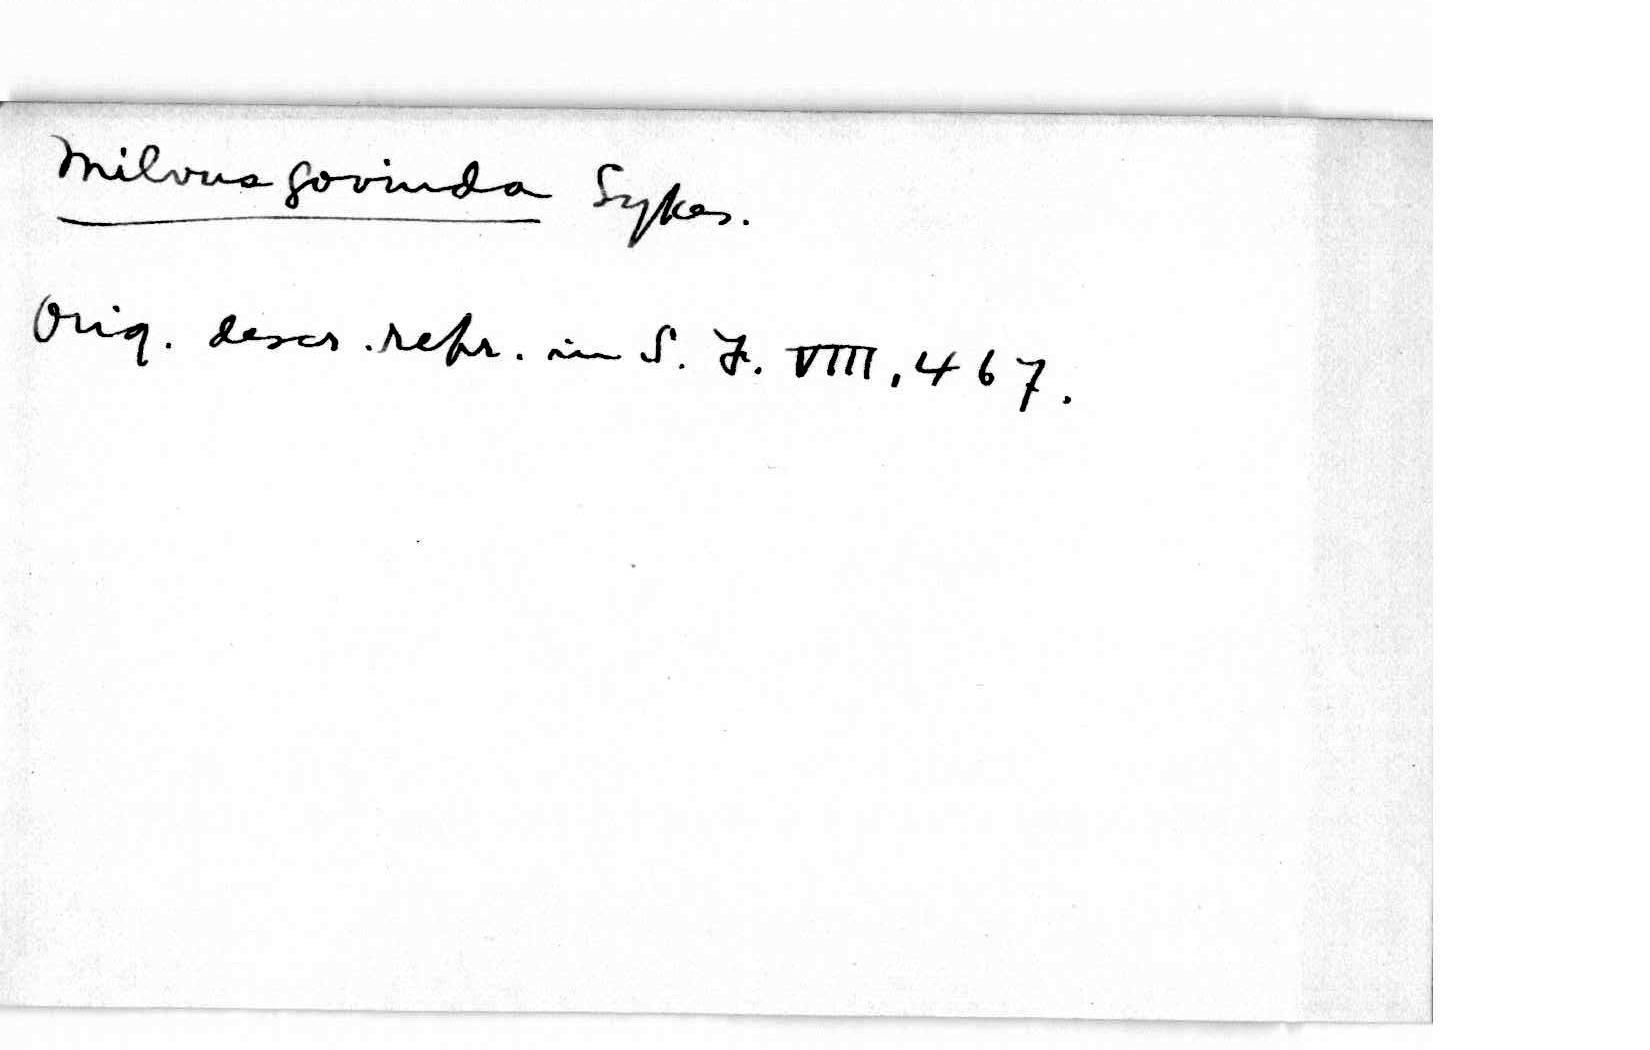 Milvus govinda Sykes.
Orig. descr. repr. in S. F. VIII, 467.